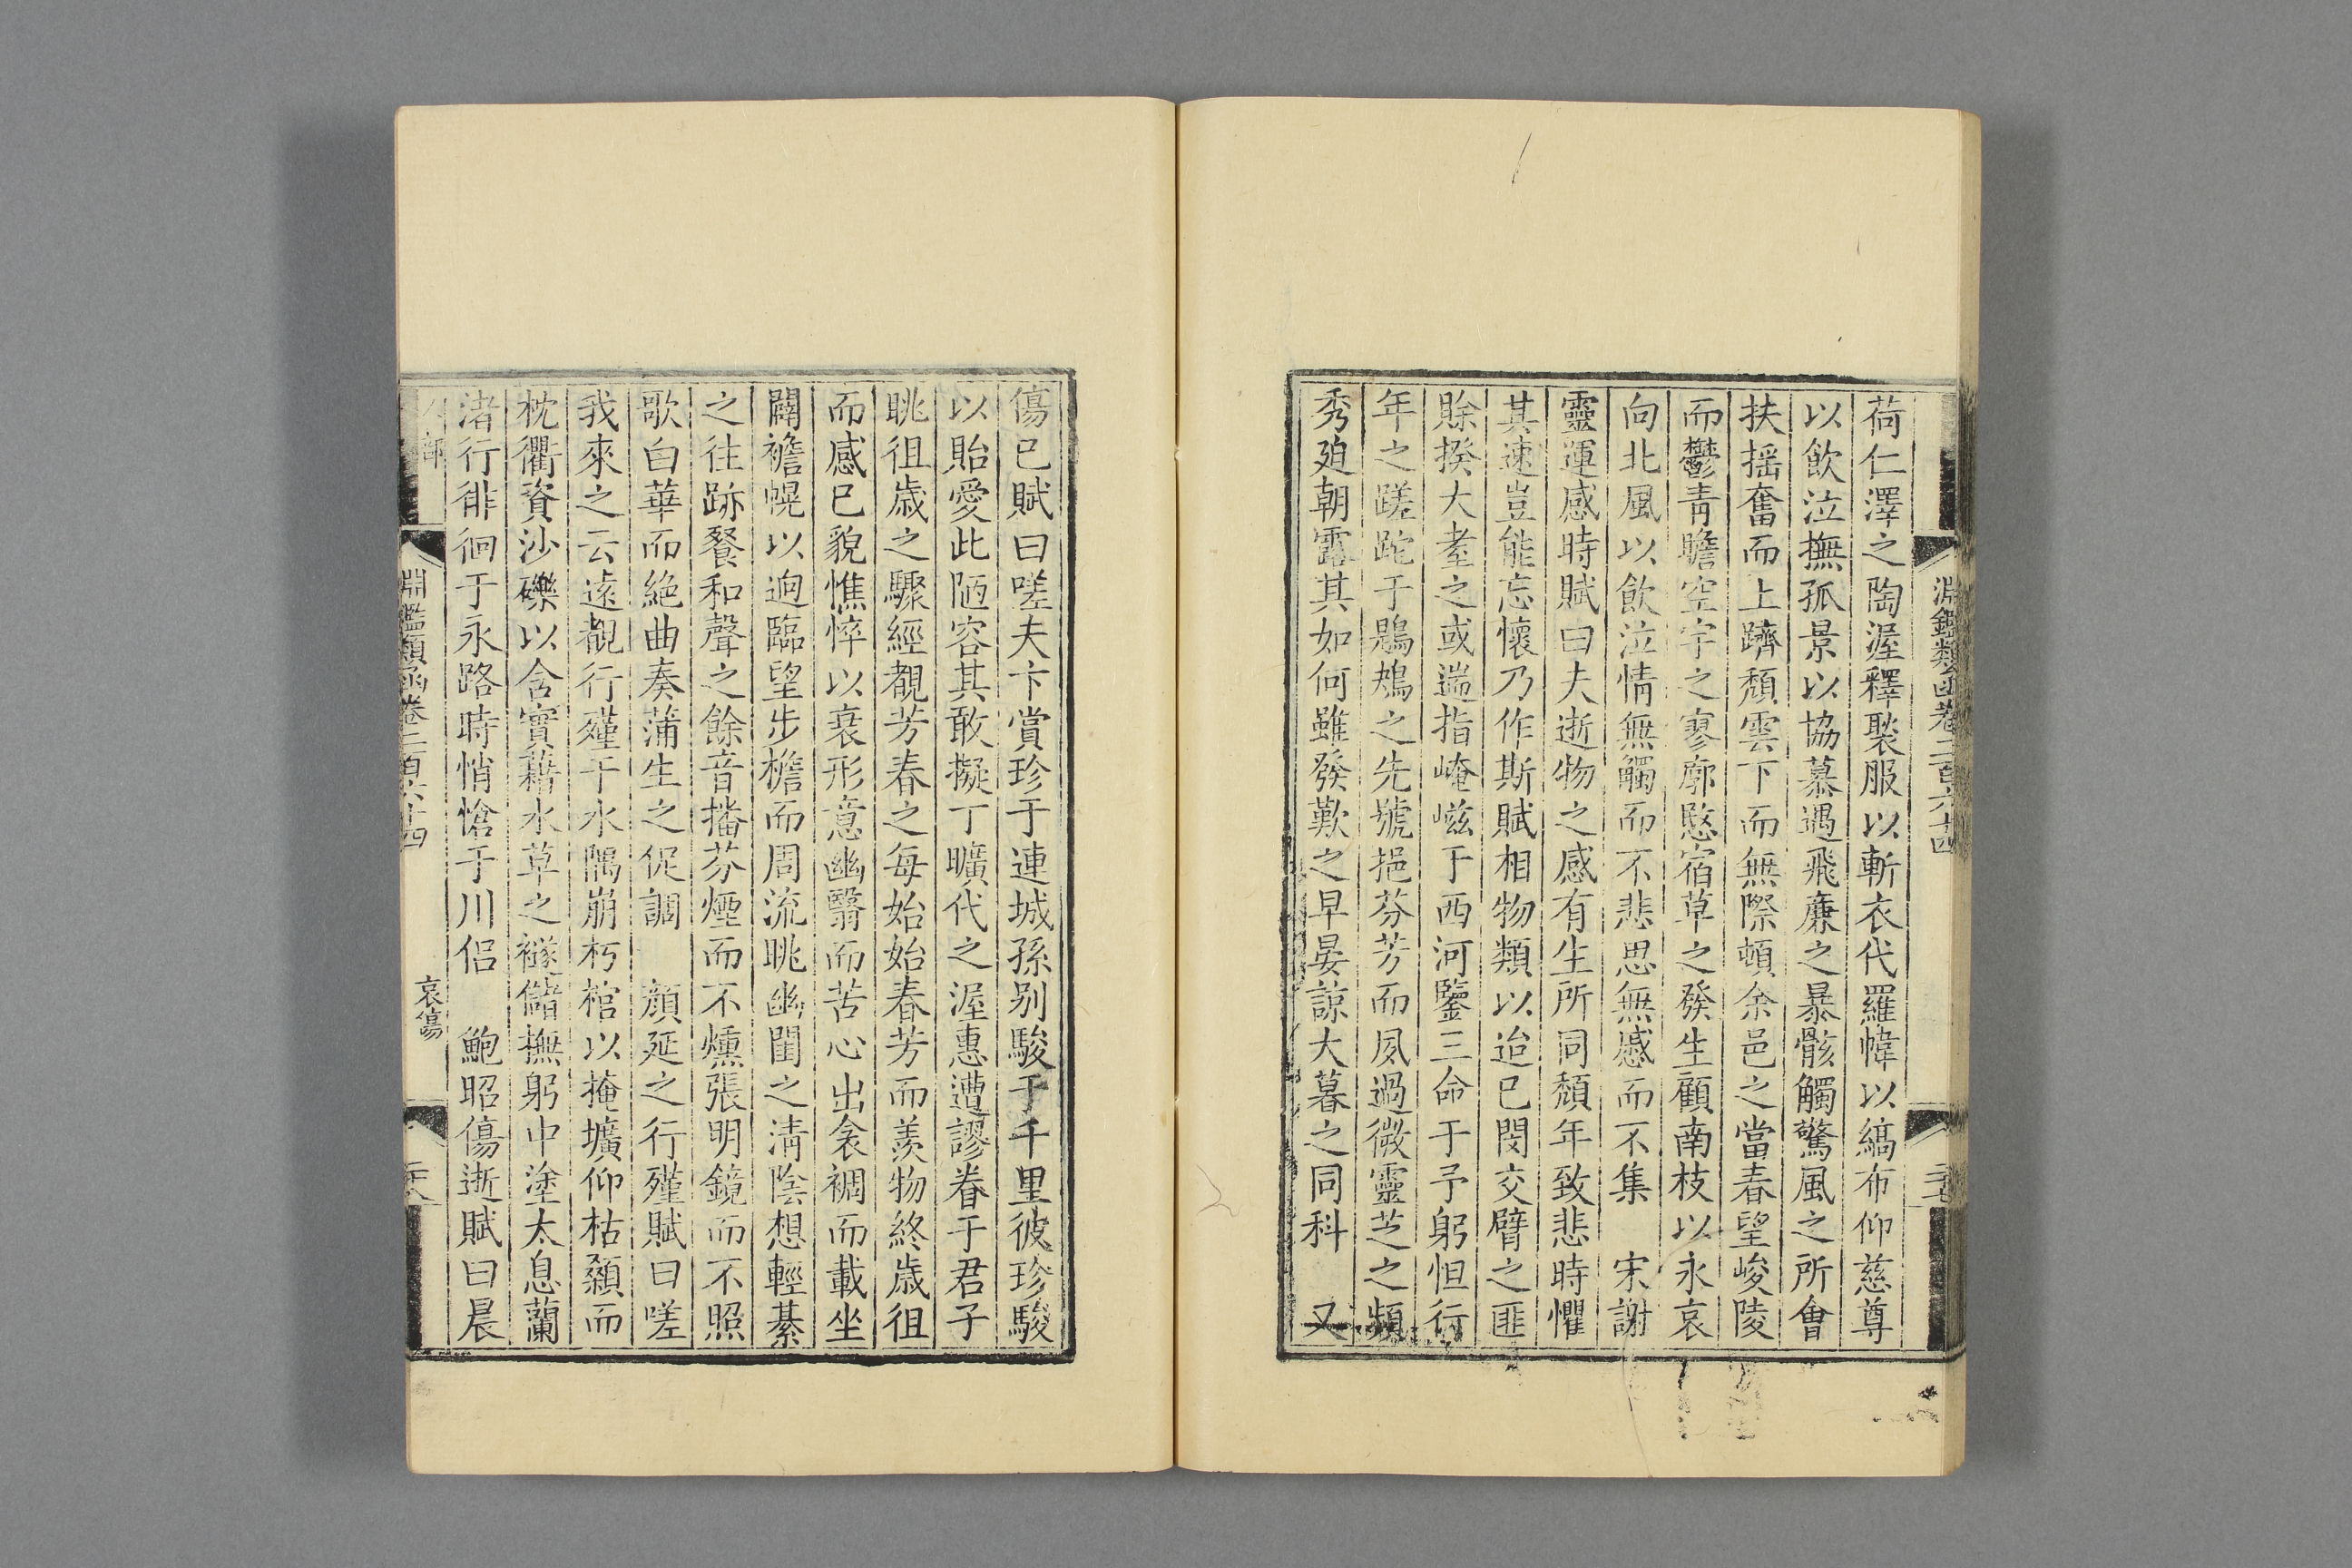 淵鑑類函卷二百六十四
荷仁澤之陶渥釋褧服以斬衣代羅幃以縞布仰慈尊
以飲泣撫孤景以協慕遇飛廉之暴骸觸驚風之所會
扶搖奮而上躋頹雲下而無際頓余邑之當春望峻陵
而鬱青瞻空宇之寥廓愍宿草之發生顧南枝以永哀
向北風以飲泣情無觸而不悲思無感而不集　宋謝
靈運感時賦曰夫逝物之感有生所同頹年致悲時懼
其速豈能忘懷乃作斯賦相物類以迨已閔交臂之匪
賖揆大耋之或遄指崦嵫于西河鑒三命于予躬怛行
年之蹉跎于鶗鴂之先號挹芬芳而夙過微靈芝之頻
秀迫朝露其如何雖發歎之早晏諒大暮之同科　又
傷已賦曰嗟夫卞賞珍于連城孫别駿于千里彼珍駿
以貽愛此陋容其敢擬丁曠代之渥惠遭謬眷于君子
眺徂歲之驟經覩芳春之每始始春芳而羨物終歲徂
而感已貌憔悴以衰形意幽翳而苦心出衾裯而載坐
闢襜幌以迥臨望步櫩而周流眺幽閨之清陰想輕綦
之往跡餐和聲之餘音播芬煙而不燻張明鏡而不照
歌白華而絶曲奏蒲生之促調　顔延之行殣賦曰嗟
我來之云遠覩行殣于水隅崩朽棺以掩壙仰枯顙而
枕衢資沙礫以含實藉水草之襚儲撫躬中塗太息蘭
渚行徘徊于永路時悄愴于川侣　鮑昭傷逝賦曰晨
淵鑑類函卷二百六十四
哀傷